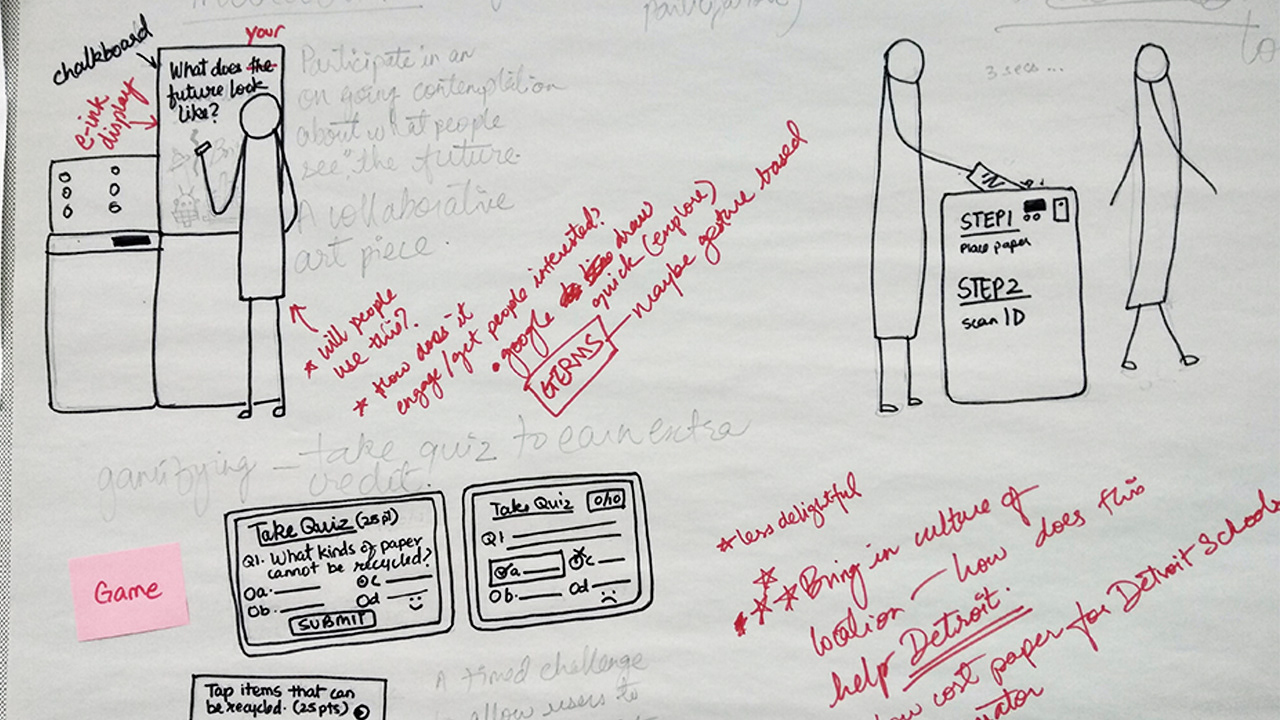 chalkboard
e-ink
display
your
What does the
future look
like?
Participate in an
on going contemplation
about what people
see "the future.
A collaborative
art piece.
* will people
use this?
* How does it
engage/get people interested?
• google draw
quick (explore)
GERMS — maybe gesture based
3 secs...
to
STEP1
Place paper
STEP2
scan ID
gamifying – take quiz to earn extra
credit.
Game
Take Quiz (25pt)
Q1. What kinds of paper
cannot be recycled?
a.
b.
c
d
SUBMIT
Take Quiz 0/10
Q1
a.
b.
c.
d
Tap items that can
be recycled. (25pts)
A timed challenge
allow users to
* less delightful
* * * Bring in culture of
location – how does this
help Detroit.
cost paper for Detroit Schools